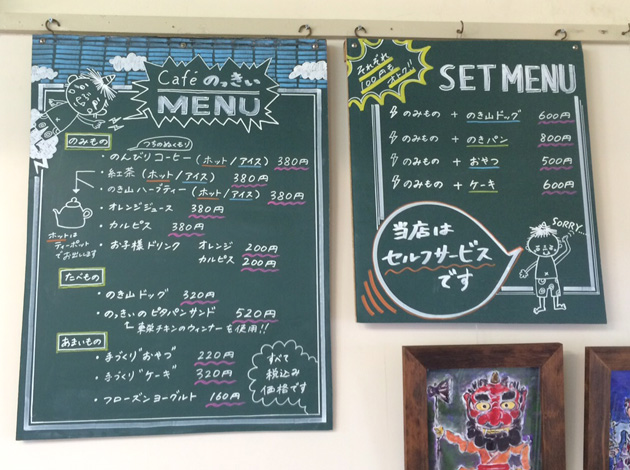 Café のっきい
MENU
のみもの
つちのぬくもり
・のんびりコーヒー (ホット/アイス) 380円
・紅茶 (ホット/アイス) 380円
・のき山ハーブティー (ホット/アイス) 380円
・オレンジジュース 380円
・カルピス 380円
ホットは
ティーポット
でお出しします
・お子様ドリンク オレンジ 200円
カルピス 200円
たべもの
・のき山ドッグ 320円
・のっきいのピタパンサンド 520円
チキンのウィンナーを使用!!
あまいもの
・手づくり"おやつ" 220円
・手づくり"ケーキ" 320円
・フローズンヨーグルト 160円
すべて
税込み
価格です
それぞれ
100円も
オトク!!
SET MENU
のみもの + のき山ドッグ 600円
のみもの + のきパン 800円
のみもの + おやつ 500円
のみもの + ケーキ 600円
当店は
セルフサービス
です
SORRY...